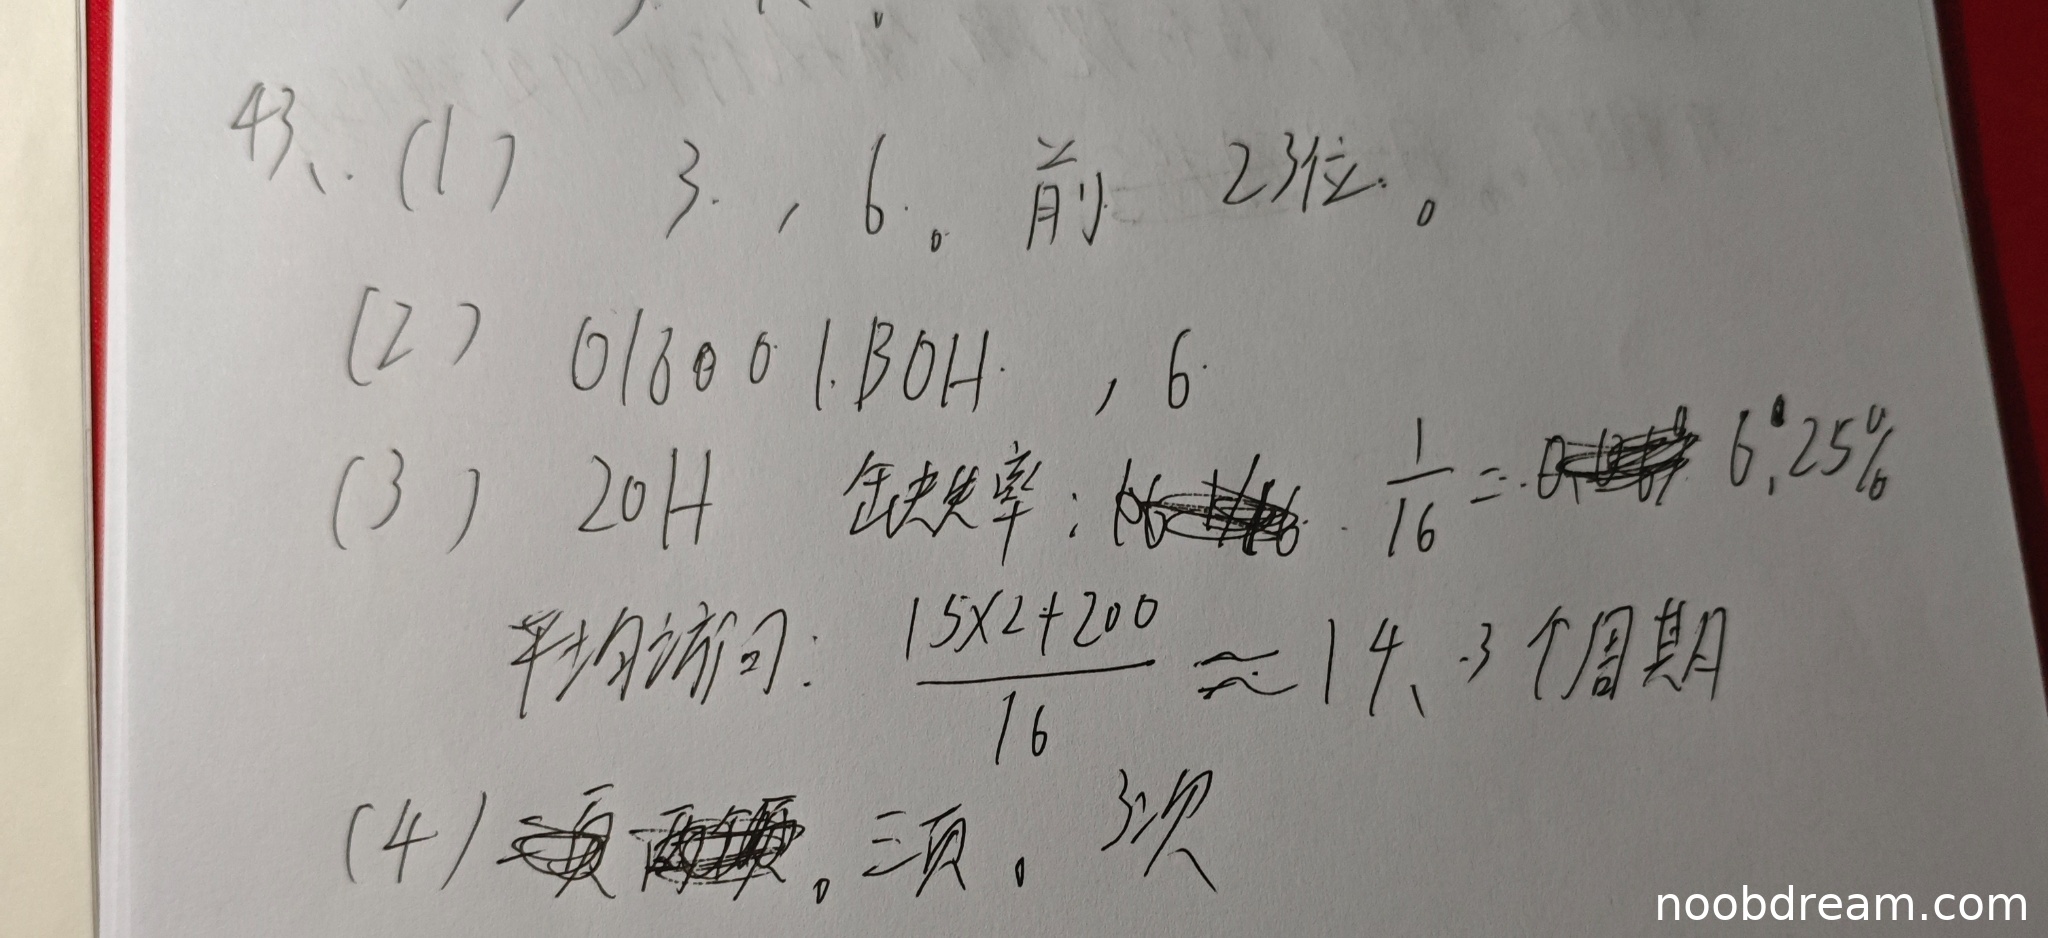 43、(1) 3，6。前 23位。
(2) 018001B0H，6
(3) 20H 缺失率： 1/16 = 6.25%
平均访问： (15×2+200)/16 ≈ 14.3个周期
(4) 。三页。3次
noobdream.com